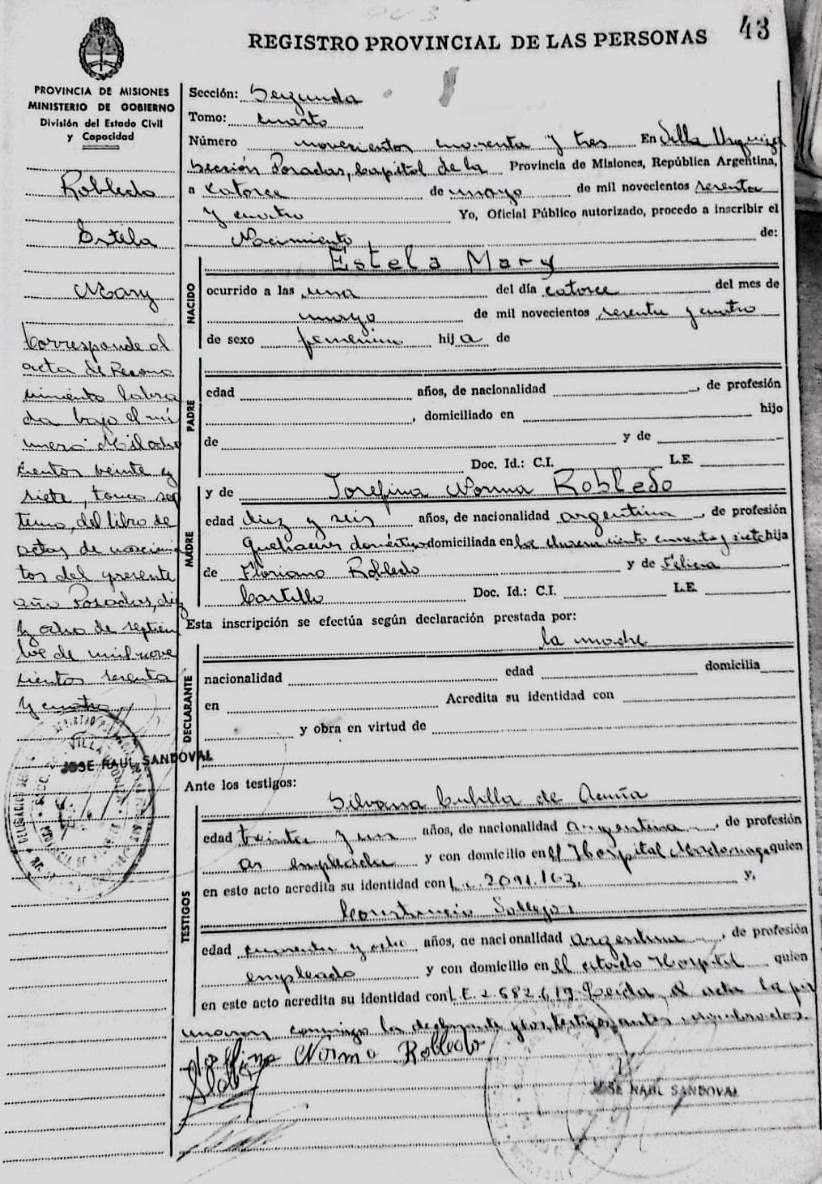 43
REGISTRO PROVINCIAL DE LAS PERSONAS
PROVINCIA DE MISIONES
MINISTERIO DE GOBIERNO
División del Estado Civil
y Capacidad
Robledo
Estela
Mary
Corresponde al
acta de Recono
cimiento labra
da bajo el nú
mero Mil ocho
cientos veinte y
siete, tomo sep
timo, del libro de
actas de nacimien
tos del presente
año Posadas, diez
y ocho de septiem
bre de mil nove
cientos sesenta
y cuatro
JOSE RAUL SANDOVAL
Sección: Segunda
Tomo: cuarto
Número novecientos cuarenta y tres En Villa Urquiza
Sección Posadas, Capital de la Provincia de Misiones, República Argentina,
a catorce de mayo de mil novecientos sesenta
y cuatro Yo, Oficial Público autorizado, procedo a inscribir el
Nacimiento de:
NACIDO
Estela Mary
ocurrido a las una del día catorce del mes de
mayo de mil novecientos sesenta y cuatro
de sexo femenino hija de
PADRE
edad años, de nacionalidad , de profesión
, domiciliado en hijo
de y de
Doc. Id.: C.I. L.E.
MADRE
y de Josefina Norma Robledo
edad diez y seis años, de nacionalidad argentina , de profesión
Quehaceres domésticos domiciliada en ciento cuarenta y siete hija
de Floriano Robledo y de Felisa
Castillo Doc. Id.: C.I. L.E.
Esta inscripción se efectúa según declaración prestada por:
DECLARANTE
la madre
nacionalidad edad domicilia
en Acredita su identidad con
y obra en virtud de
Ante los testigos:
TESTIGOS
Silvana Cubilla de Acuña
edad treinta y un años, de nacionalidad argentina , de profesión
empleada y con domicilio en el Hospital quien
en este acto acredita su identidad con L.C. 2091.163. y,
Constancio
edad cuarenta y ocho años, de nacionalidad argentina , de profesión
empleado y con domicilio en el citado Hospital quien
en este acto acredita su identidad con L.E. 2.682.619. Leida el acta la fir
maron conmigo la declarante y los testigos antes nombrados.
Norma Robledo
JOSE RAUL SANDOVAL